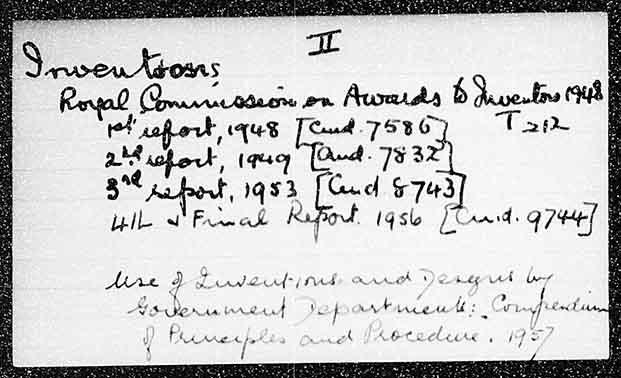 II
Inventions
Royal Commission on Awards to Inventors 1948
1st report, 1948 [Cmd. 7586] T 212
2nd report, 1949 [Cmd. 7832]
3rd report, 1953 [Cmd 8743]
4th & Final Report. 1956 [Cmd. 9744]
Use of Inventions and Designs by
Government Departments: Compendium
of Principles and Procedure. 1957